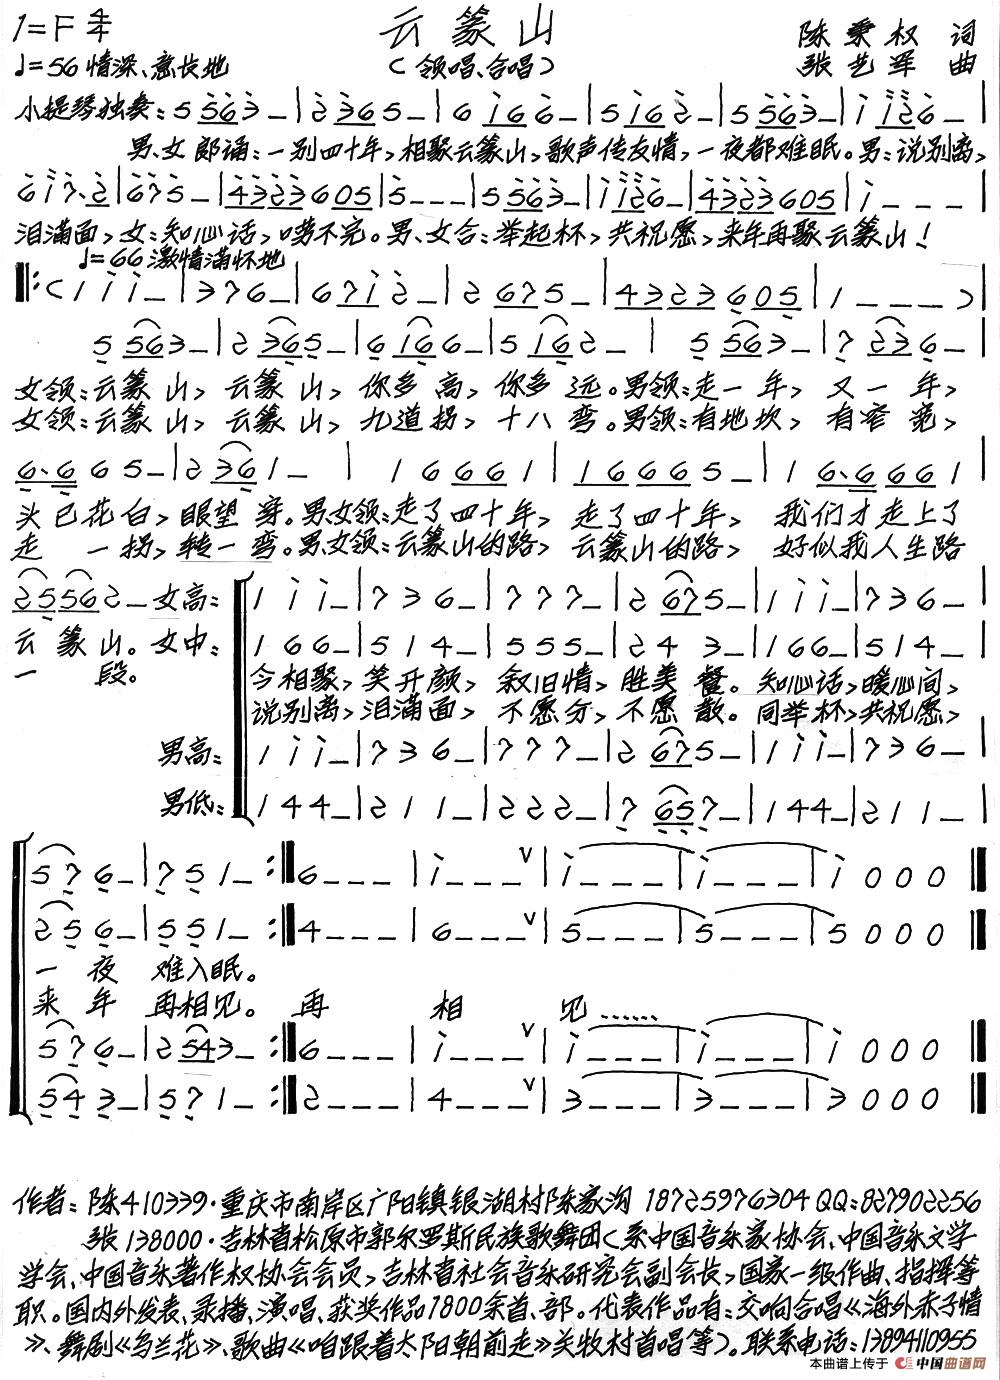 云篆山
1=F 4/4
陈秉权 词
♩=56 情深、意长地
（领唱、合唱）
张艺军 曲
小提琴独奏：5 563－｜2 365－｜6 166－｜5 162－｜5 563－｜1 1126－｜
男、女郎诵：一别四十年，相聚云篆山，歌声传友情，一夜都难眠。男：说别离，
617·2｜675－｜4323605｜5－－－｜5563－｜1126－｜4323605｜1－－－｜
泪满面，女：知心话，唠不完。男、女合：举起杯，共祝愿，来年再聚云篆山！
♩=66 激情满怀地
‖:（111－｜376－｜6712－｜2675－｜4323605｜1－－－）｜
5563－｜2365－｜6166－｜5162－｜5563－｜7236－｜
女领：云篆山，云篆山，你多高，你多远。男领：走一年，又一年，
女领：云篆山，云篆山，九道拐，十八弯。男领：有地坎，有窄宽，
6·665－｜2361－｜16661｜16665－｜16·6661｜
头已花白，眼望穿。男、女领：走了四十年，走了四十年，我们才走上了
走一拐，转一弯。男、女领：云篆山的路，云篆山的路，好似我人生路
25562－ 女高：111－｜736－｜777－｜2675－｜111－｜736－｜
云篆山。女中：166－｜514－｜555－｜243－｜166－｜514－｜
一段。 今相聚，笑开颜，叙旧情，胜美餐。知心话，暖心间，
说别离，泪满面，不愿分，不愿散。同举杯，共祝愿，
男高：111－｜736－｜777－｜2675－｜111－｜736－｜
男低：144－｜211－｜222－｜7657－｜144－｜211－｜
576－｜751－:‖6－－－｜1－－－∨｜1－－－｜1－－－｜1000‖
256－｜551－:‖4－－－｜6－－－∨｜5－－－｜5－－－｜5000‖
一夜难入眠。
来年再相见。再相见……
576－｜2543－:‖6－－－｜1－－－∨｜1－－－｜1－－－｜1000‖
543－｜571－:‖2－－－｜4－－－∨｜3－－－｜3－－－｜3000‖
作者：陈410339·重庆市南岸区广阳镇银湖村陈家沟 18725976304 QQ：827902256
张138000·吉林省松原市郭尔罗斯民族歌舞团（系中国音乐家协会、中国音乐文学
学会、中国音乐著作权协会会员，吉林省社会音乐研究会副会长，国家一级作曲、指挥等
职。国内外发表、录播、演唱、获奖作品1800余首、部。代表作品有：交响合唱《海外赤子情
》、舞剧《乌兰花》、歌曲《咱跟着太阳朝前走》关牧村首唱等）。联系电话：13894110955
本曲谱上传于 中国曲谱网